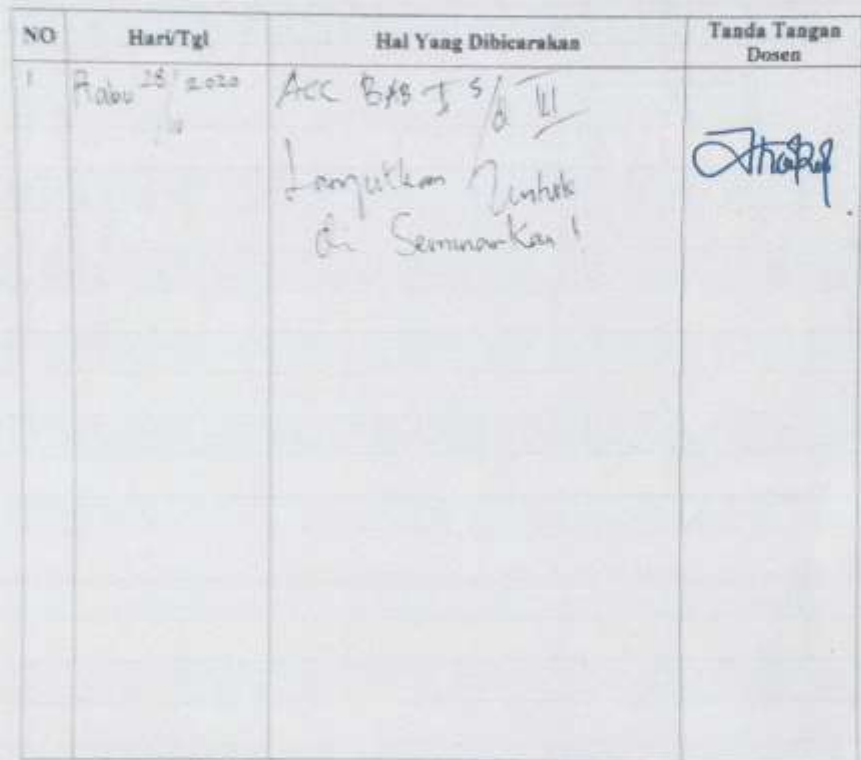 NO Hari/Tgl Hal Yang Dibicarakan Tanda Tangan Dosen
1 Rabu 28/ 2020 Acc BAB I s/d III
Lanjutkan Untuk
di Seminarkan!